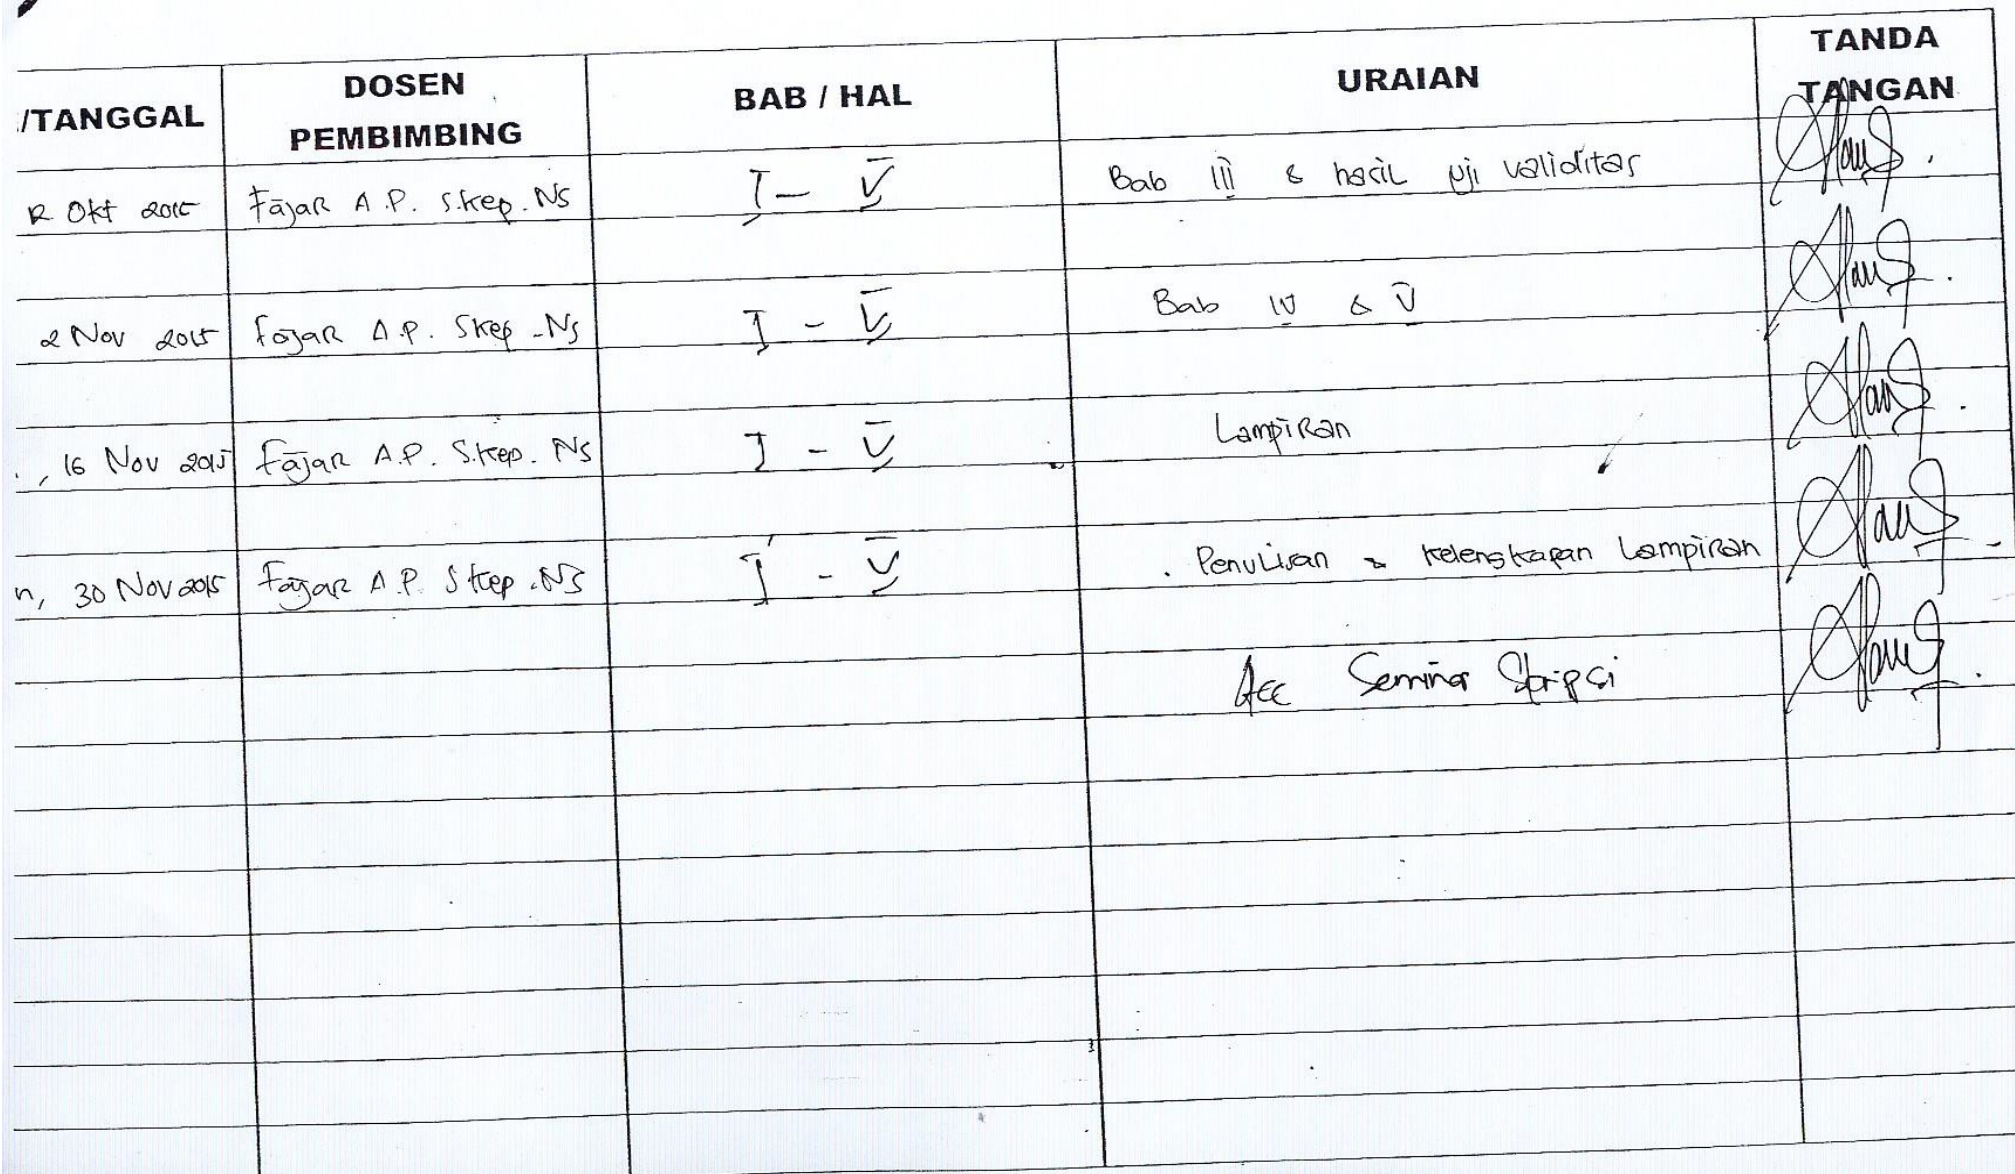 /TANGGAL DOSEN PEMBIMBING BAB / HAL URAIAN TANDA TANGAN
Okt Fajar A.P. S.kep. Ns I - V Bab III & hasil uji validitas
2 Nov 2015 Fajar A.P. Skep -Ns I - V Bab IV & V
, 16 Nov 2015 Fajar A.P. S.kep. Ns I - V Lampiran
n, 30 Nov 2015 Fajar A.P. Skep .Ns I - V Penulisan & kelengkapan Lampiran
Acc Seminar Skripsi